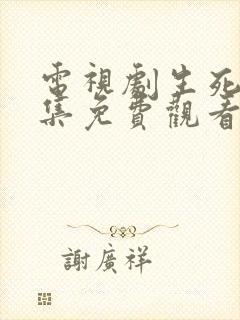 電視劇生死
集免費觀看
謝廣祥